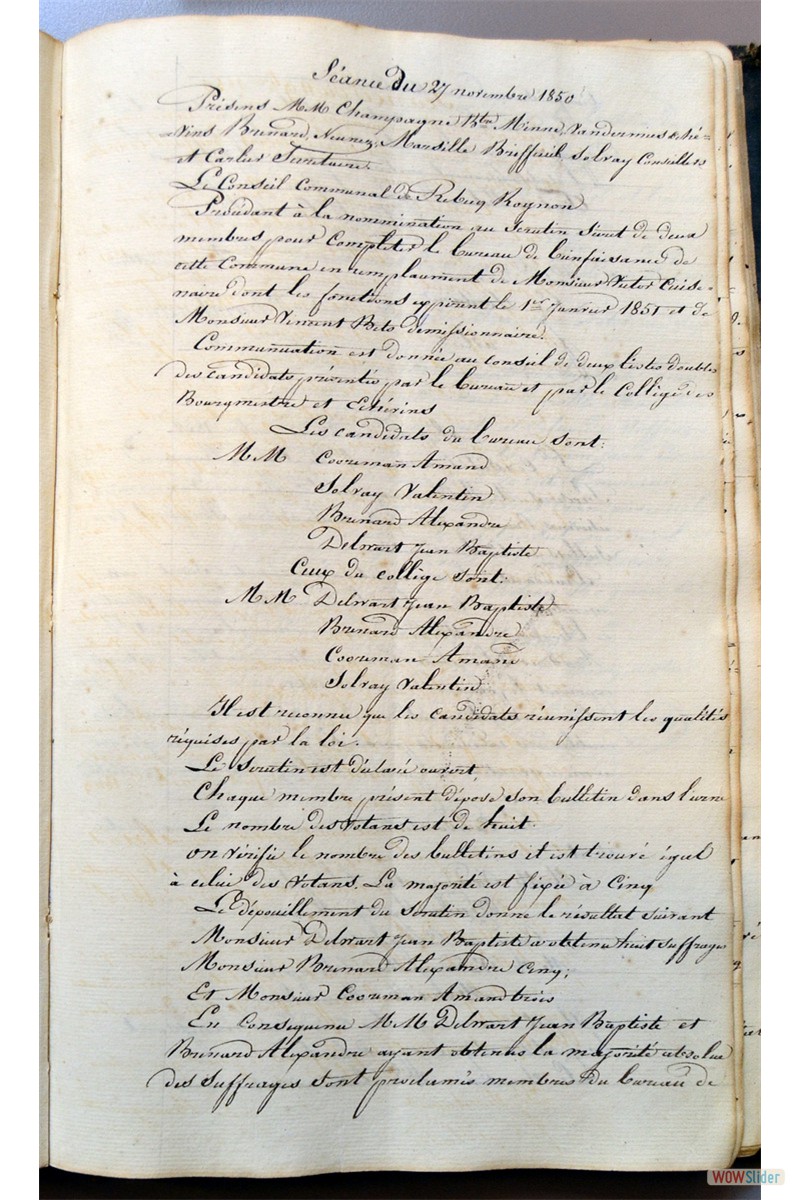 Séance du 27 novembre 1850
Présens MM Champagne Btre Minne, Vandermies Eché=
=vins Brenard, Neunez, Marsille Brieffeuil Solvay Conseillers
et Carlier Secretaire.
Le Conseil Communal de Rebecq Rognon
Procédant à la nommination au scrutin sécret de deux
membres pour completer le bureau de bienfaisance de
cette Commune en remplacement de Monsieur Victor Cuise=
naire dont les fonctions expirent le 1er Janvier 1851 et de
Monsieur Vincent Bets démissionnaire.
Communication est donnée au conseil de deux listes doubles
des candidats présentés par le bureau et par le Collège des
Bourgmestre et Echévins
Les candidats du bureau sont:
MM Cooreman Amand
Solvay Valentin
Brenard Alexandre
Delwart Jean Baptiste
Ceux du collège sont:
MM Delwart Jean Baptiste
Brenard Alexandre
Cooreman Amand
Solvay Valentin
Il est reconnu que les candidats réunissent les qualités
réquises par la loi.
Le scrutin est déclaré ouvert
Chaque membre présent dépose son bulletin dans l'urne
Le nombre des votans est de huit.
on vérifie le nombre des bulletins et est trouvé égal
à celui des votans. La majorité est fixée à Cinq
Le dépouillement du scrutin donne le résultat suivant
Monsieur Delwart Jean Baptiste a obtenu huit suffrages
Monsieur Brenard Alexandre Cinq;
Et Monsieur Cooreman Amand trois
En Conséquence MM Delwart Jean Baptiste et
Brenard Alexandre ayant obtenus la majorité absolue
des suffrages sont proclamés membres du bureau de
WOWSlider